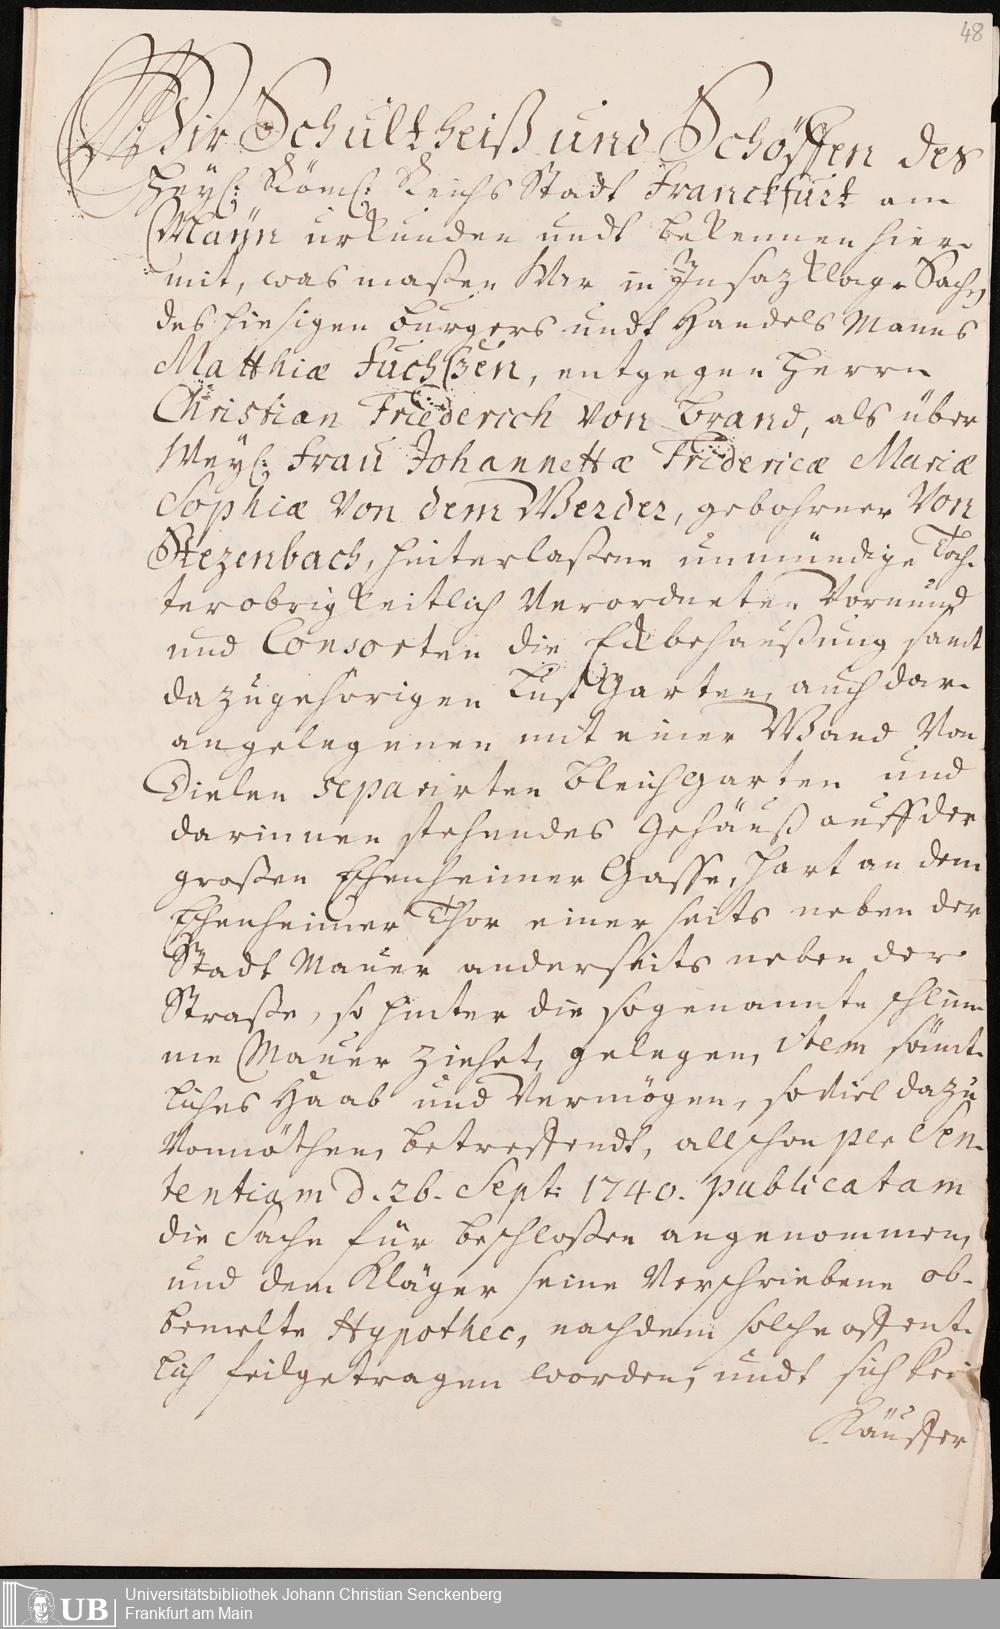 48
Wir Schultheiß und Schöffen des
Heyl: Röml: Reichs Stadt Franckfurt am
Mayn urkunden undt bekennen hier-
mit, was maßen Wir in Insazklag-Sachen
des hiesigen burgers undt Handels Manns
Matthiæ Fuchßen, entgegen Herrn
Christian Friederich von Brand, als über
Weyl: Frau Johannettæ Fridericæ Mariæ
Sophiæ Von dem Werder, gebohrner Von
Stezenbach, hinterlaßene unmündige Toch-
ter obrigkeitlich Verordneten Vormund
und Consorten die Eckbehaußung samt
dazugehörigen Lust Garten, auch dar-
angelegenen mit einer Wand Von
Dielen separirten Bleichgarten und
darinnen stehendes Gehäuß auff der
großen Eschenheimer Gasse, hart an dem
Eschenheimer Thor einer seits neben der
Stadt Mauer anderseits neben der
Straße, so hinter die sogenannte schlim-
me Mauer ziehet, gelegen, item sämt-
liches Haab und Vermögen, so viel dazu
Vonnöthen, betreffendt, allschon per Sen-
tentiam d. 26. Sept: 1740. publicatam
die Sache für beschloßen angenommen,
und dem Kläger seine Verschriebene ob-
bemelte Hypothec, nachdem solche offent-
lich feilgetragen worden, undt sich kein
Käuffer
UB
Universitätsbibliothek Johann Christian Senckenberg
Frankfurt am Main